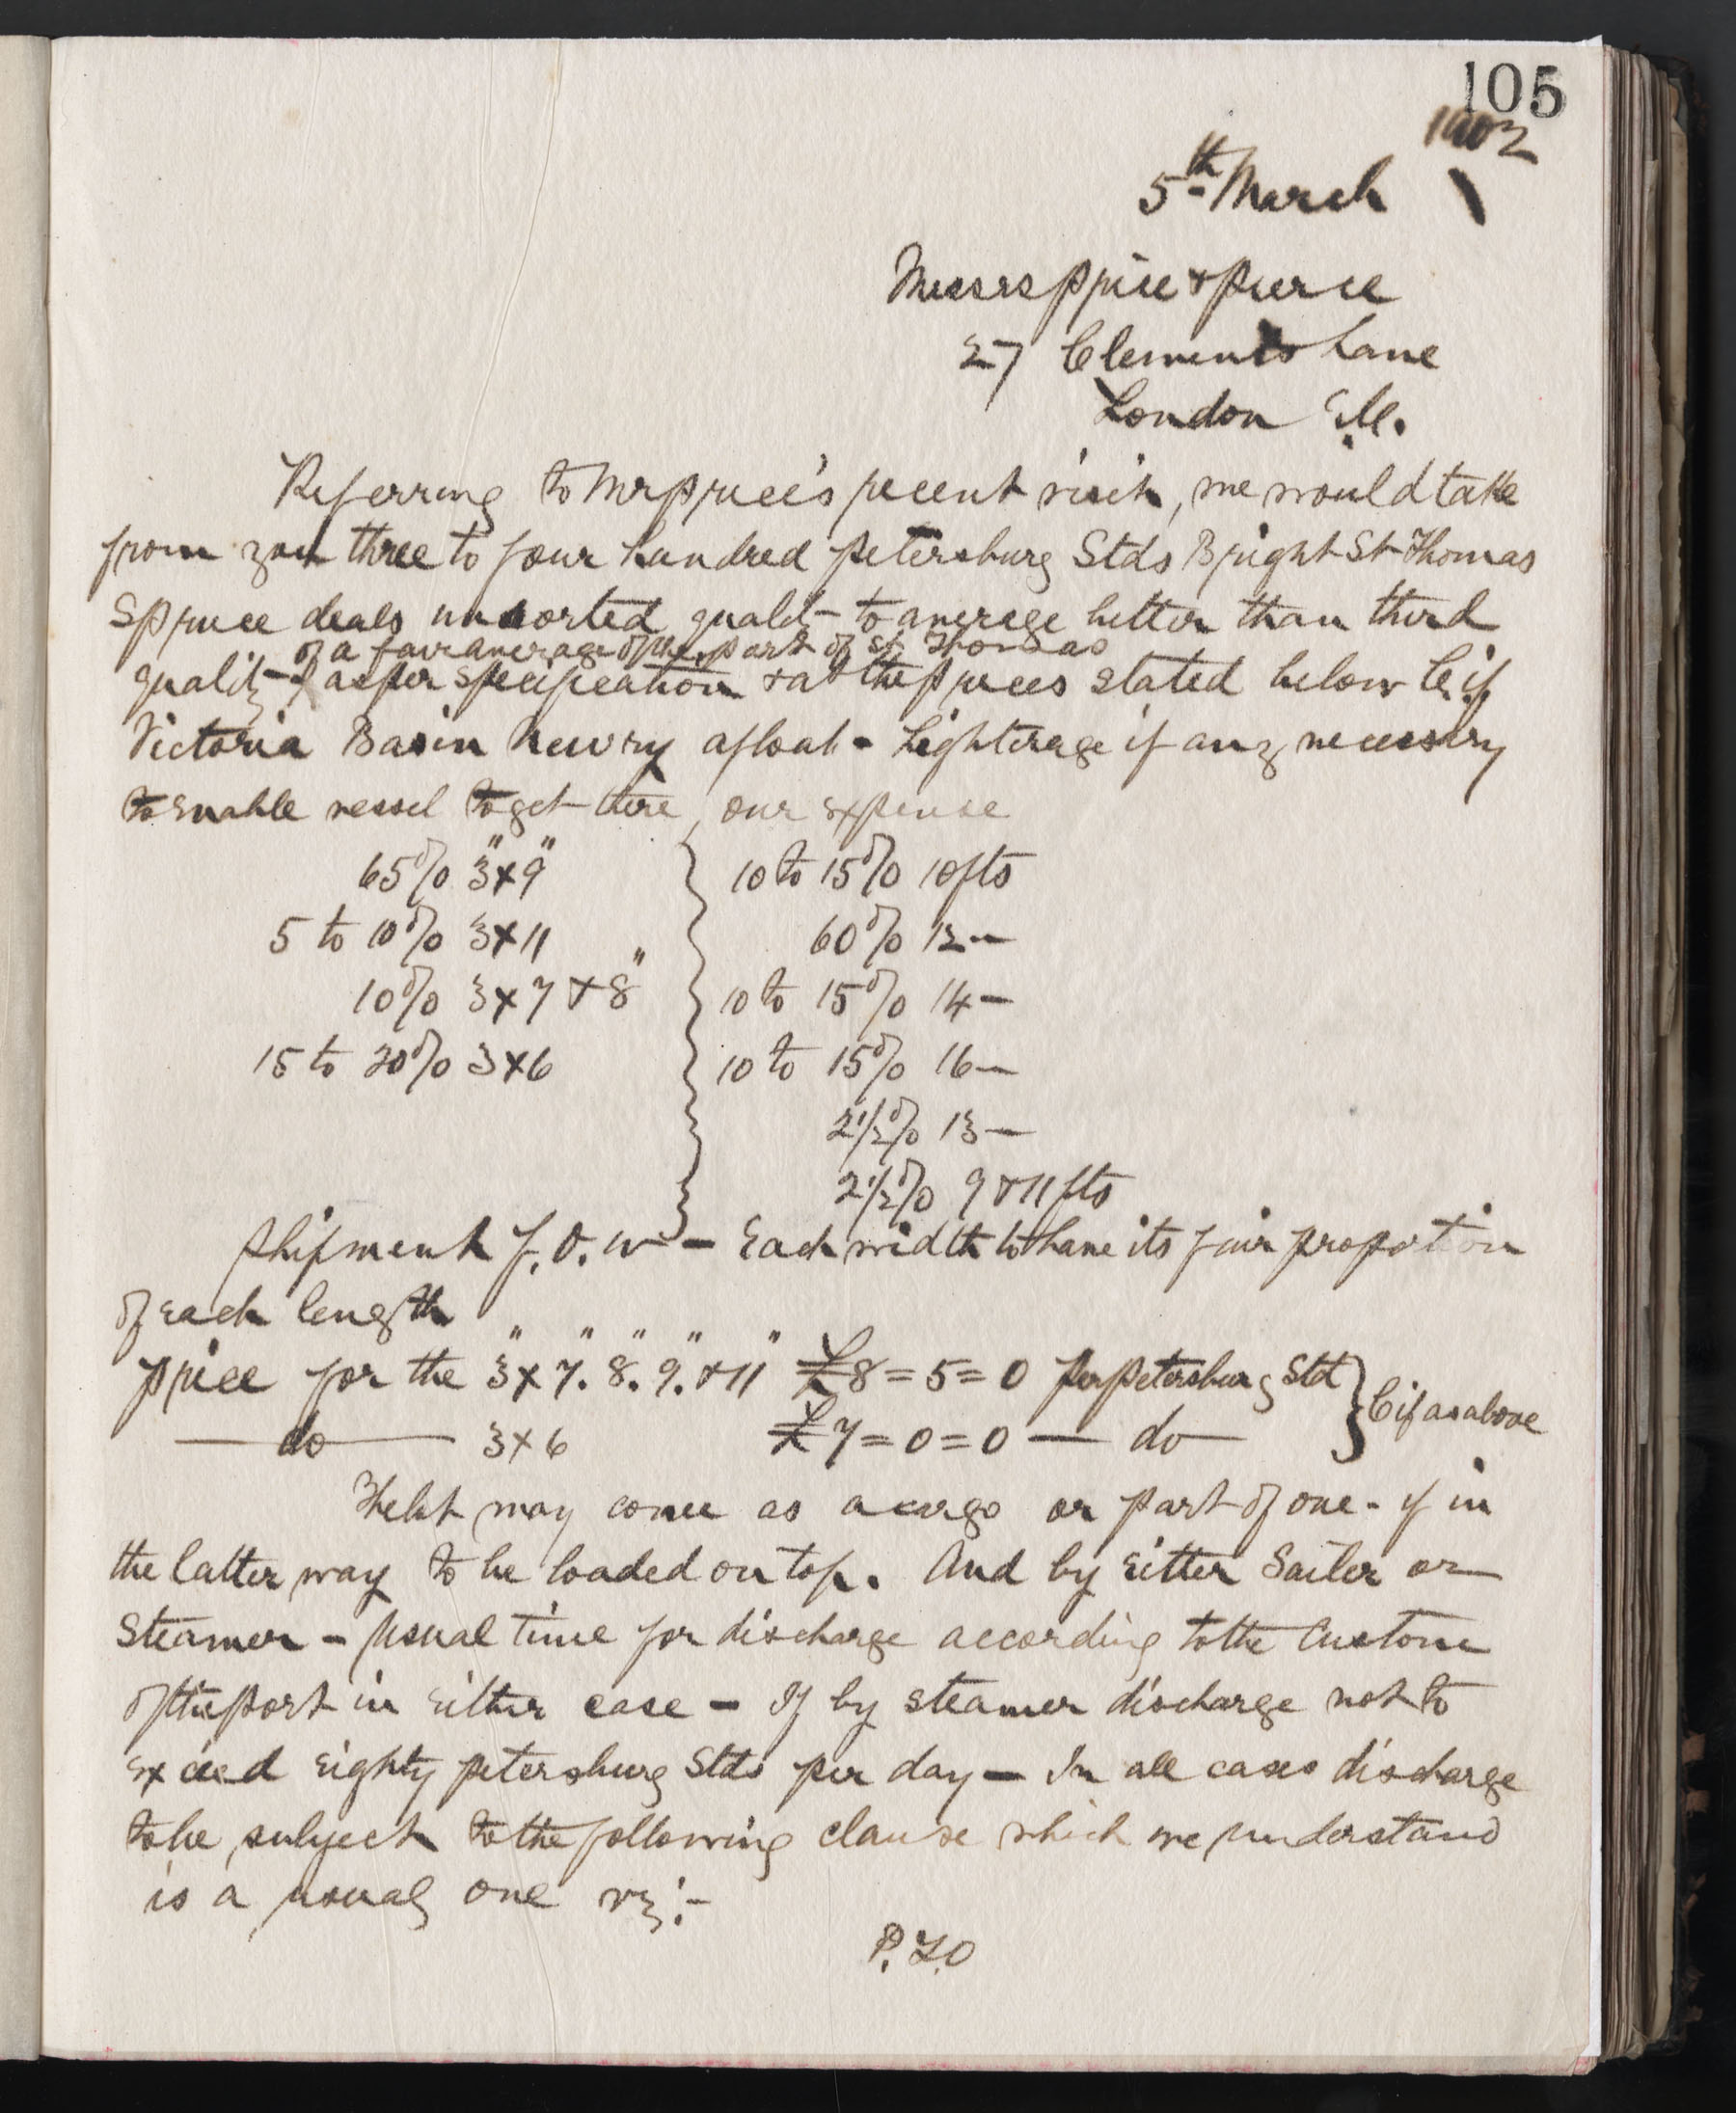 105
1902
5th March
Messrs Price & Pierce
27 Clements Lane
London E.C.
Referring to Mr Price's recent visit, we would take
from you three to four hundred Petersburg Stds Bright St Thomas
Spruce deals unsorted quality to average better than third
of a fair average of the port of St Thomas
quality & as per specification & at the prices stated below C.i.f.
Victoria Basin Newry afloat - Lighterage if any necessary
to enable vessel to get there, our expense
65% 3"x9" 10 to 15% 10fts
5 to 10% 3x11 60% 12—
10% 3x7 & 8" 10 to 15% 14—
15 to 20% 3x6 10 to 15% 16—
2½% 13—
2½% 9 & 11fts
Shipment f.o.w — Each width to have its fair proportion
of each length
Price for the 3"x7". 8". 9". & 11" £8=5=0 per Petersburg Std } Cif as above
— do — 3x6 £7=0=0 — do —
The lot may come as a cargo or part of one - if in
the latter way to be loaded on top. And by Either Sailer or
Steamer — Usual time for discharge according to the Custom
of the port in Either case — If by steamer discharge not to
Exceed Eighty Petersburg Stds per day — In all cases discharge
to be subject to the following clause which we understand
is a usual one viz:-
P.T.O